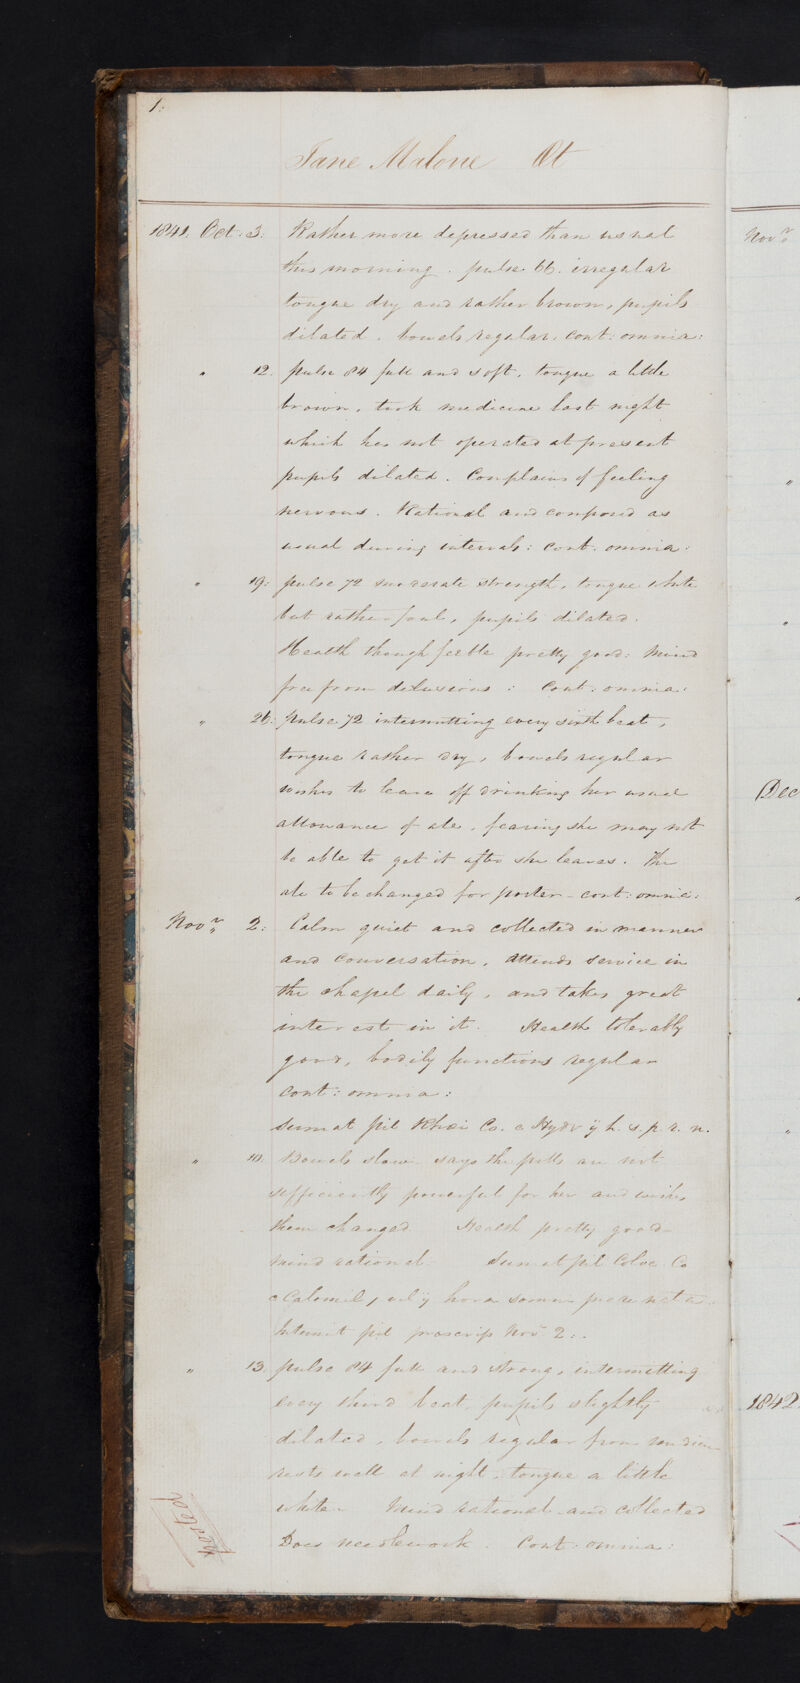 1.
Jane Malone Æt
1841. Oct. 3. Rather more depressed than usual
this morning. pulse 66. irregular
tongue dry and rather brown, pupils
dilated. bowels regular. cont: omnia:
" 12. pulse 84 full and soft, tongue a little
brown, took medicine last night
which has not operated at present
pupils dilated. Complains of feeling
nervous. Rational and composed as
usual during intervals: cont: omnia:
" 19: pulse 72 moderate strength, tongue white
but rather foul, pupils dilated.
Health though feeble pretty good: Mind
free from delusions: Cont: omnia:
" 26: pulse 72 intermitting every sixth beat,
tongue rather dry, bowels regular
wishes to leave off drinking her usual
allowance of ale, fearing she may not
be able to get it after she leaves. The
ale to be changed for porter - cont: omnia:
Novr 2: Calm quiet and collected in manner
and conversation, attends service in
the chapel daily, and takes great
interest in it. Health tolerably
good, bodily functions regular
cont: omnia:
Sumat pil Rhæi Co. c Hydr ij h. s. p. r. n.
" 10. Bowels slow - says the pills are not
sufficiently powerful for her and wishes
them changed Health pretty good -
Mind rational - Sumat pil Coloc. Co
c Calomel, ij hora somni pro re nata
pil Nov 2:.
" 13. pulse 84 full and strong, intermitting
every third beat, pupils slightly
dilated, bowels regular from
rests well at night, tongue a little
white - Mind rational and collected
Does needlework. Cont: omnia:
Novr
Dec
1842.